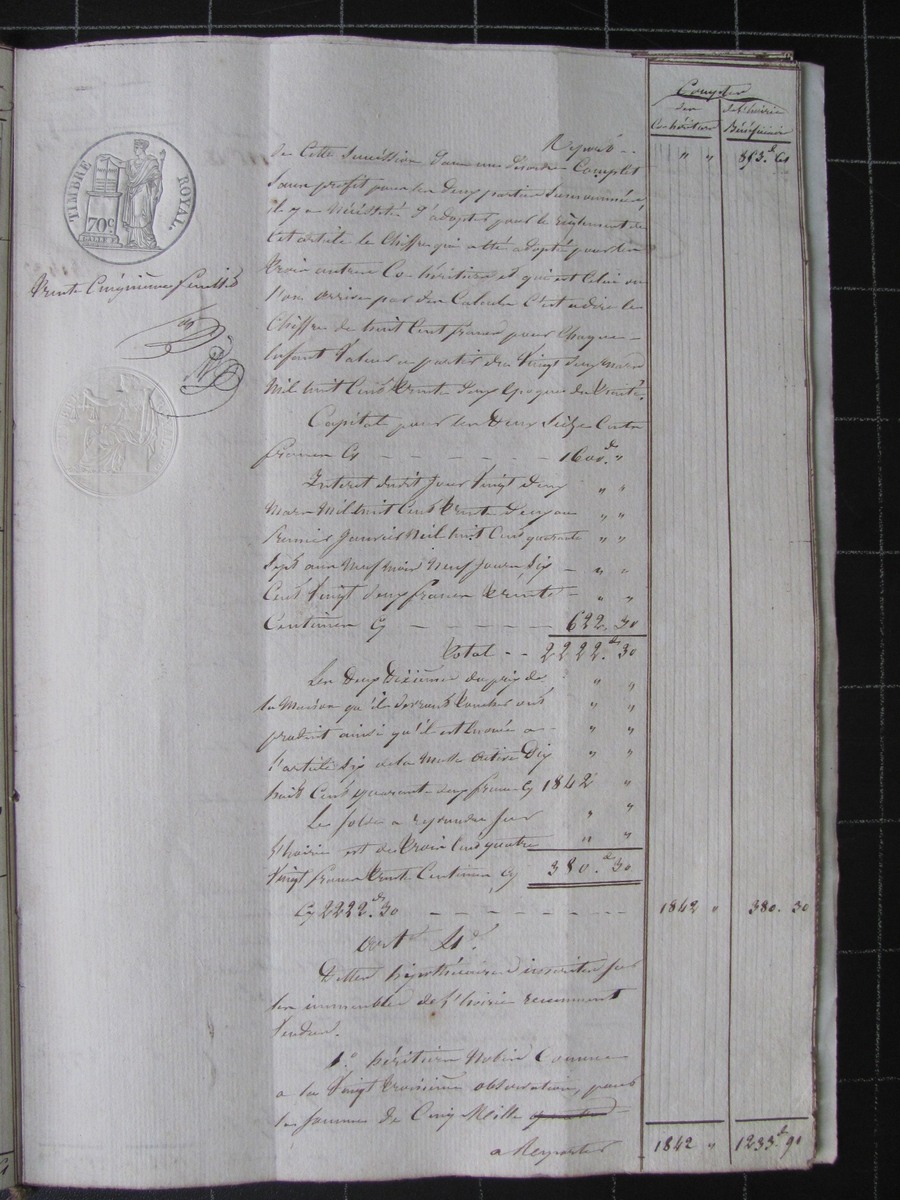 Comptes
des Co-héritiers
de l'hoirie Bénéficiaire
TIMBRE ROYAL
70c
Report - -
" " 853.d 61
de Cette Succession dans un désordre Complet
Sans profit pour les deux parties Susnommées,
il y a Nécessité d'adopter pour le règlement de
Cet article le Chiffre qui a été adopté pour les
trois autres Co-héritiers et qui est Celui ou
l'on arrive par des Calculs C'est à dire le
Chiffre de huit Cent francs pour Chaque
Enfant Valeur a partir du Vingt deux mars
Mil huit Cent Trente deux Epoque du
Trente Cinquième feuillet
Capital pour les deux Seize Cents
francs Cy - - - - - - 1600.d "
Interet dudit Jour Vingt deux " "
Mars Mil huit Cent Trente deux au " "
Premier Janvier Mil huit Cent quarante " "
Sept ans Neuf Mois Neuf Jours Six - " "
Cent Vingt deux francs Trente - " "
Centimes Cy - - - - - 622. 30
Total - - 2222.d 30
Les Deux Dixièmes du prix de " "
la Maison qu'ils devront toucher ont " "
produit ainsi qu'il est énoncé a " "
l'article Six de la Masse Active Dix " "
huit Cent quarante deux francs Cy 1842 "
Le Solde a reprendre Sur " "
l'hoirie est de Trois Cent quatre " "
Vingt francs Trente Centimes Cy 380.d 30
Cy 2222.d 30 - - - - - - 1842 " 380. 30
Art. 4.
Dettes hypothécaires inscrites Sur
les immeubles de l'hoirie récemment
Vendus.
1.o héritiers Nobin Comme
a la Vingt troisième observation, pour
la Somme de Cinq Mille
a Reporter 1842 " 1233.d 91